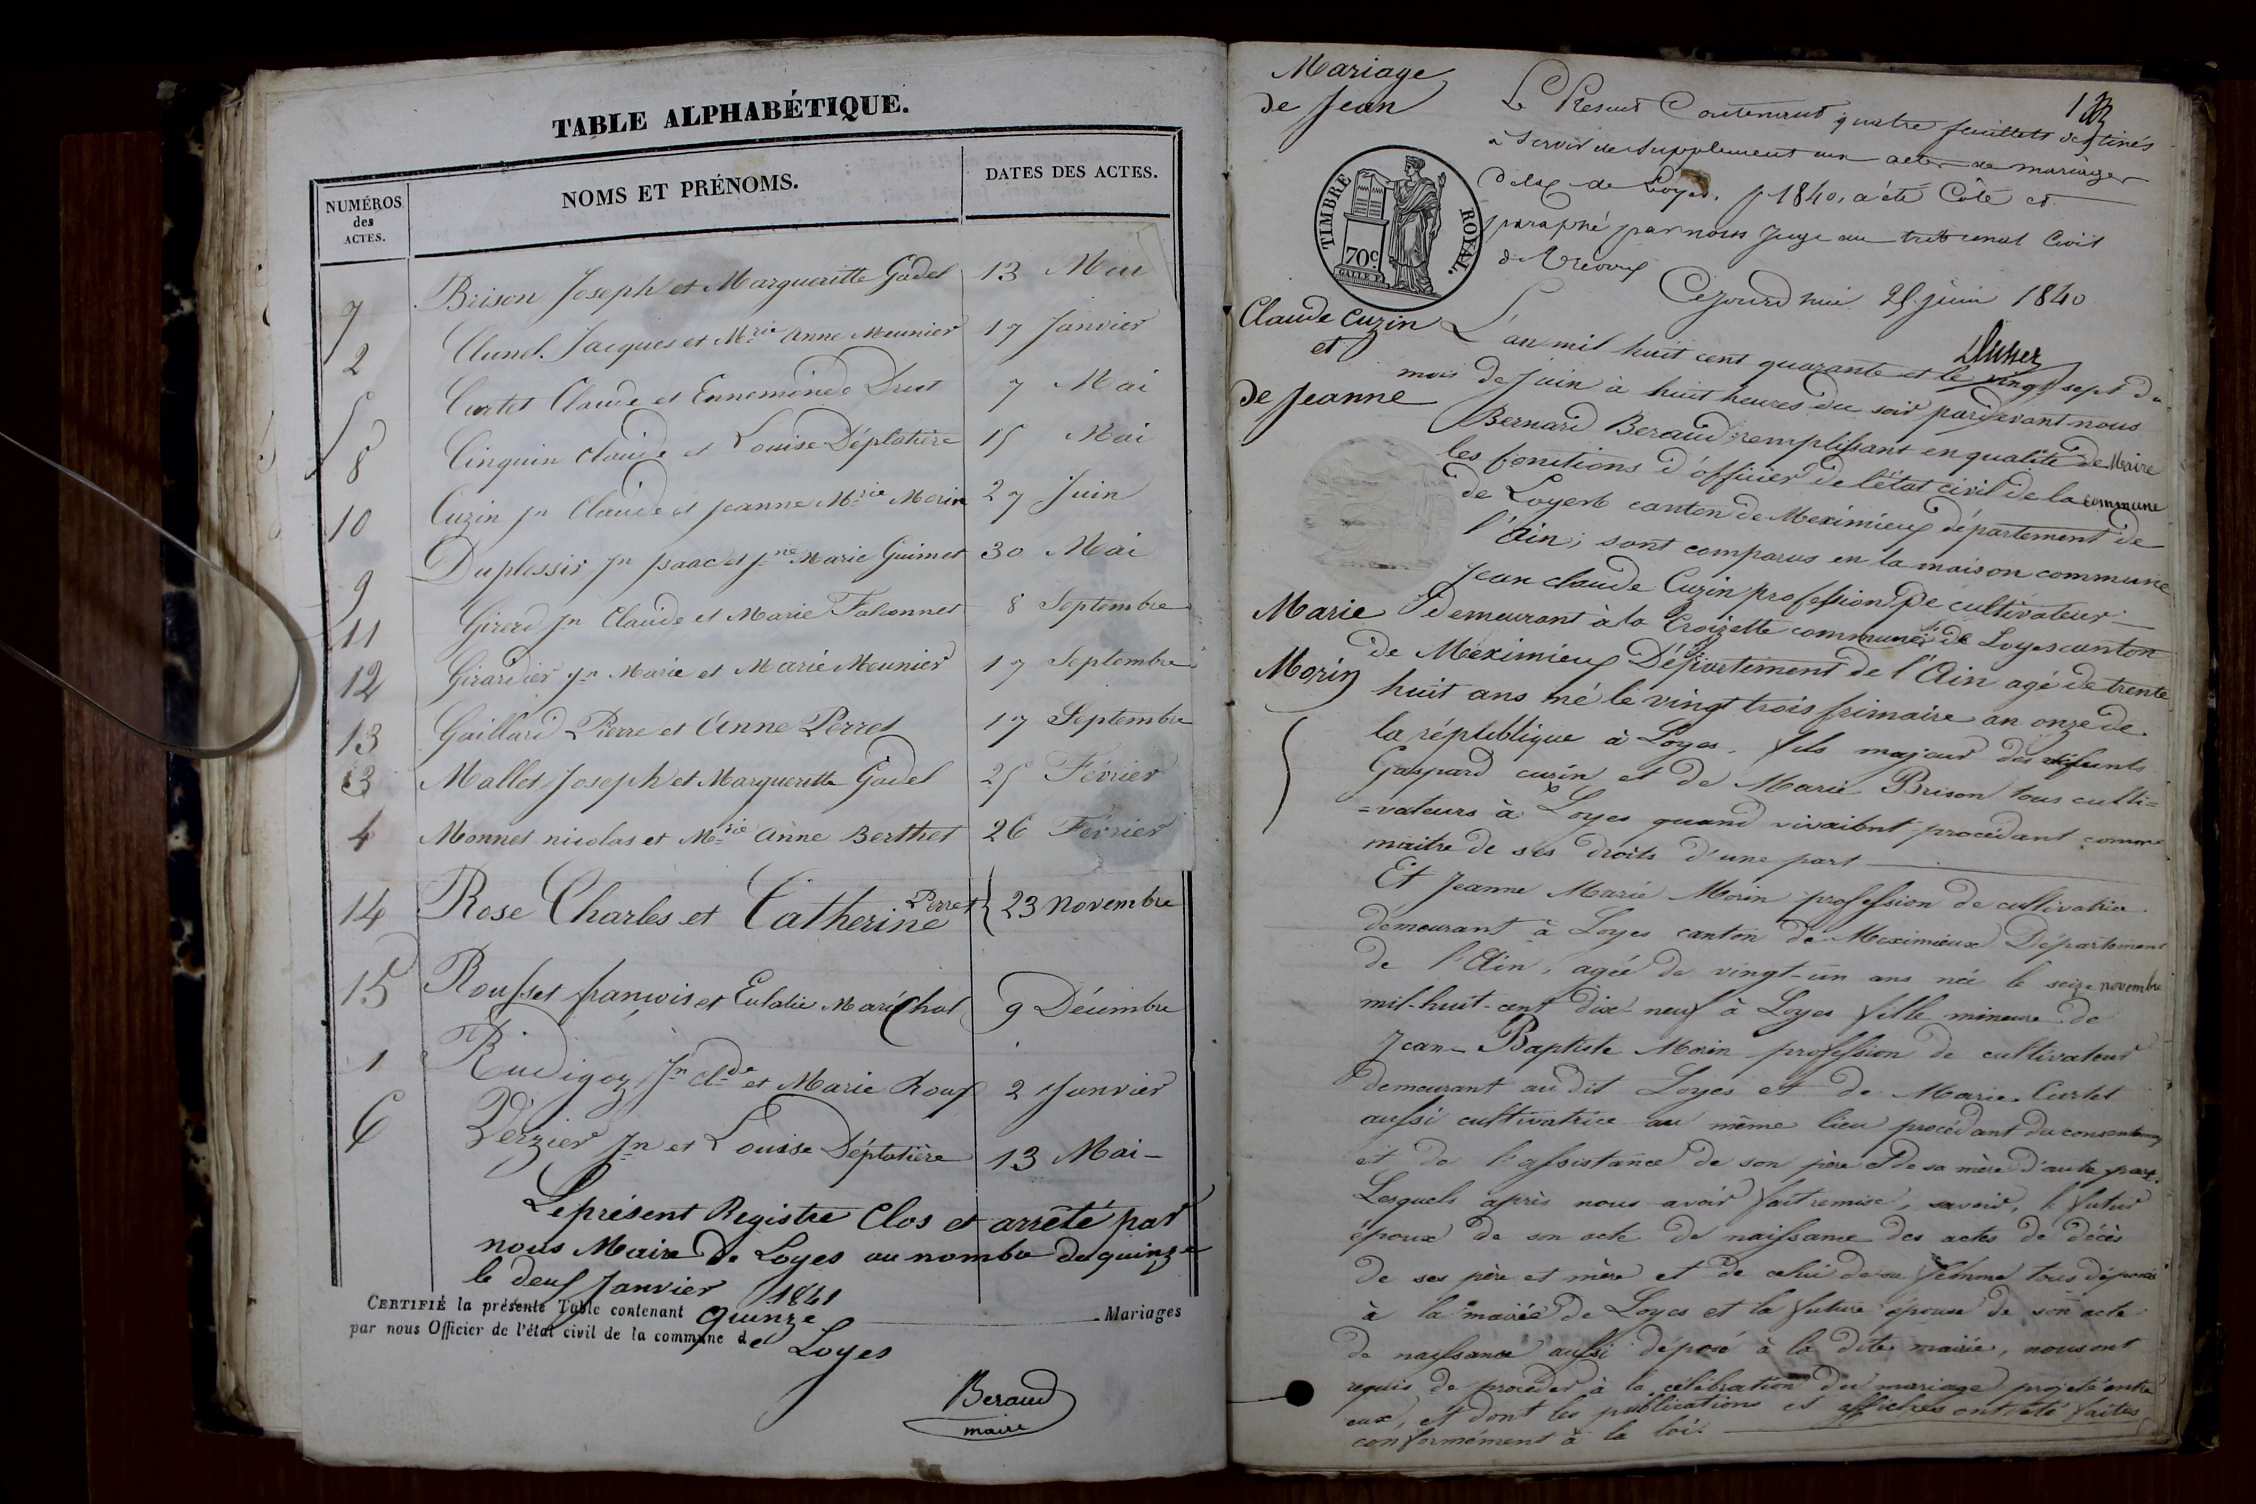 TABLE ALPHABÉTIQUE.
NUMÉROS des ACTES.
NOMS ET PRÉNOMS.
DATES DES ACTES.
7 Brison Joseph et Margueritte Gadel 13 Mai
2 Clunel Jacques et Mrie Anne Meunier 17 Janvier
5 Curtet Claude et Ennemonde Drut 7 Mai
8 Cinquin Claude et Louise Déplatière 15 Mai
10 Cuzin Jn Claude et Jeanne Mrie Morin 27 Juin
9 Duplessis Jn Isaac et Jne Marie Guimet 30 Mai
11 Girerd Jn Claude et Marie Falconnet 8 Septembre
12 Girardier Jn Marie et Marie Meunier 17 Septembre
13 Gaillard Pierre et Anne Perret 17 Septembre
3 Mallet Joseph et Margueritte Gadel 25 Février
4 Monnet nicolas et Mrie Anne Berthet 26 Février
14 Rose Charles et Catherine Perret 23 Novembre
15 Rousset françois et Eulalie Maréchal 9 Décembre
1 Rudigoz Jn Clde et Marie Roux 2 Janvier
6 Verzier Jn et Louise Déplatière 13 Mai
Le présent Registre Clos et arrêté par
nous Maire de Loyes au nombre de quinze
le deux Janvier 1841
CERTIFIÉ la présente Table contenant quinze Mariages
par nous Officier de l'état civil de la commune de Loyes
Beraud
maire
Mariage
de Jean
Claude Cuzin
et
de Jeanne
Marie
Morin
Le Présent Contenant quatre feuillets destinés
à Servir de Supplement aux actes de mariages
de Loyes, 1840, a été Côté et
paraphé par nous Juge au tribunal Civil
de Trévoux
Cejourd'hui 25 juin 1840
TIMBRE ROYAL.
70c.
L'an mil huit cent quarante et le vingt sept du
mois de Juin à huit heures du soir pardevant nous
Bernard Beraud remplissant en qualité de Maire
les fonctions d'officier de l'état civil de la commune
de Loyes canton de Meximieux département de
l'Ain; sont comparus en la maison commune
Jean Claude Cuzin profession de cultivateur
demeurant à la Croizette commune de Loyes canton
de Méximieux Département de l'Ain agé de trente
huit ans né le vingt trois frimaire an onze de
la république à Loyes. fils majeur des défunts
Gaspard cuzin et de Marie Brison tous culti=
=vateurs à Loyes quand vivaient procédant comme
maitre de ses droits d'une part
Et Jeanne Marie Morin profession de cultivatrice
demeurant à Loyes canton de Meximieux Département
de l'Ain, agée de vingt-un ans née le seize novembre
mil-huit-cent dix-neuf à Loyes fille mineure de
Jean-Baptiste Morin profession de cultivateur
demeurant au dit Loyes et de Marie Curtet
aussi cultivatrice au même lieu procédant du consentement
et de l'assistance de son père et de sa mère d'autre part.
Lesquels après nous avoir fait remise, savoir, le futur
époux de son acte de naissance des actes de décès
de ses père et mère et de celui de sa femme tous déposés
à la mairie de Loyes et la future épouse de son acte
de naissance aussi déposé à la dite mairie, nous ont
requis de procéder à la célébration du mariage projeté entre
eux, et dont les publications et affiches ont été faites
conformément à la loi.